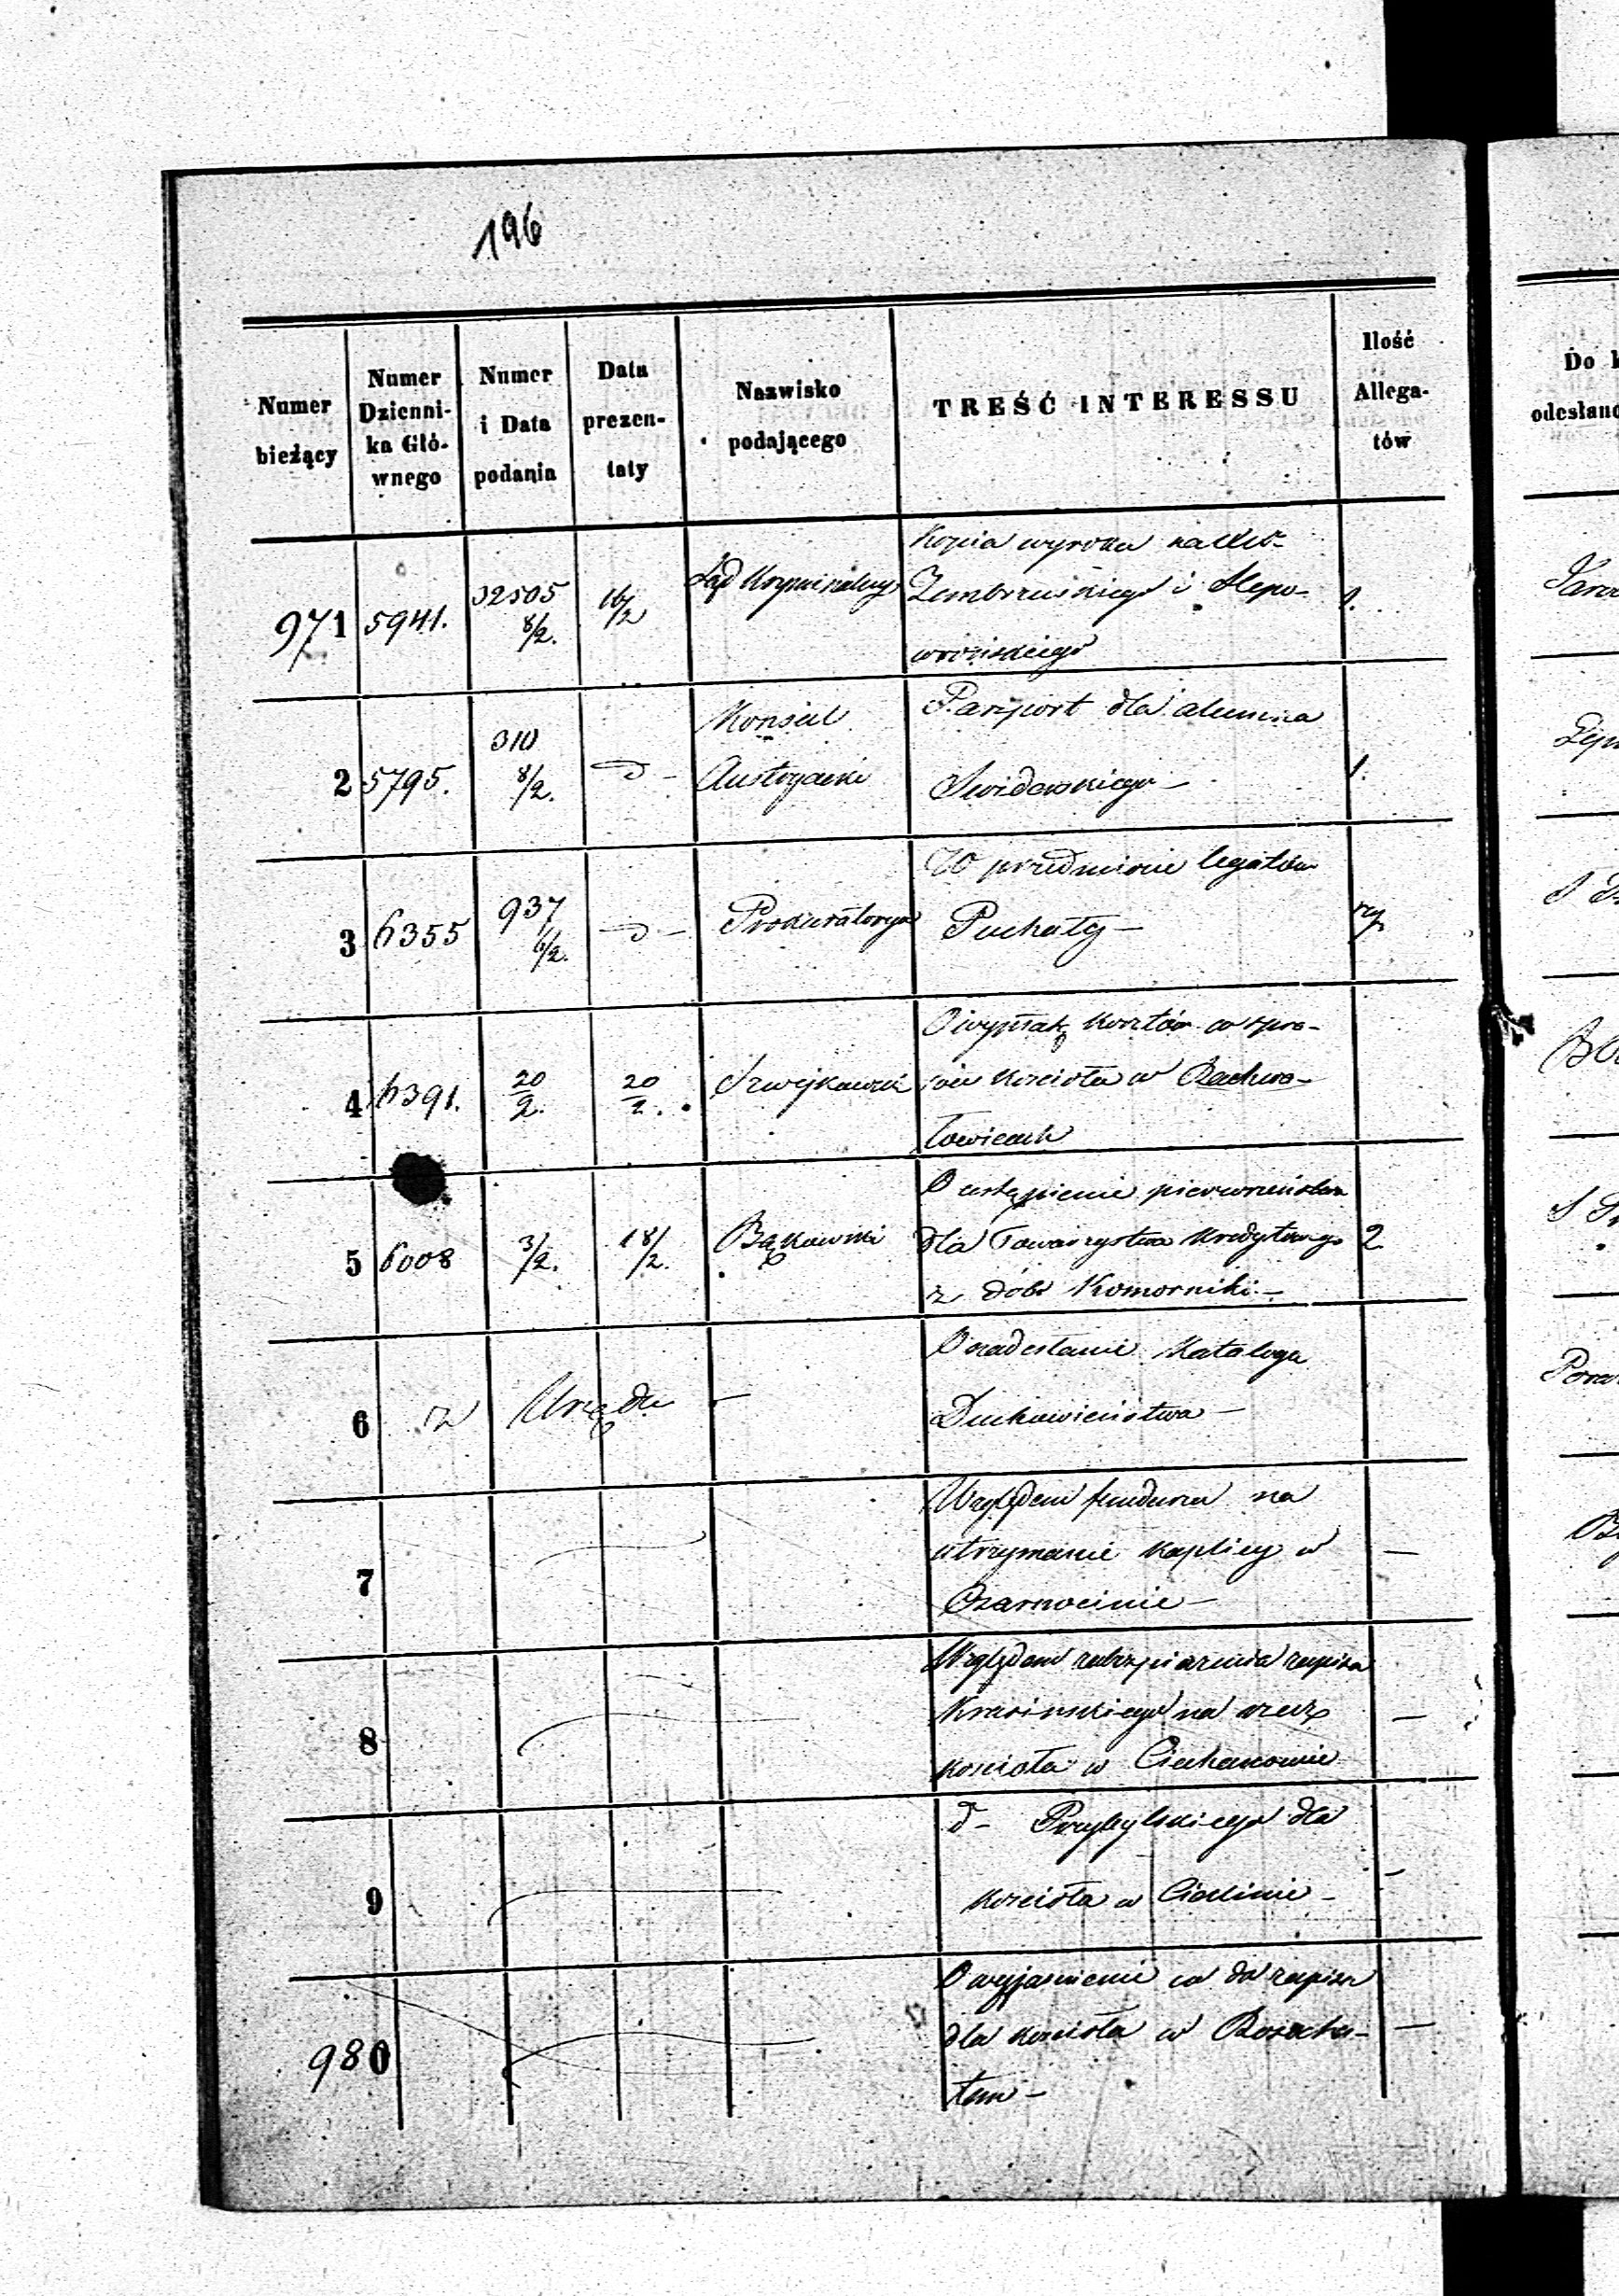 196
Numer bieżący
Numer Dzienni-
ka Głó-
wnego
Numer i Data podania
Data prezen-
taty
Nazwisko podającego
TREŚĆ INTERESSU
Ilość Allega-
tów
Do
odesłano
971 5941. 32505 8/2. 16/2 Sąd Kryminalny
Kopia wyroku na
Zembrzuskiego i Slepo-
wrońskiego
1.
2 5795. 310 8/2. d- Konsul
Austryacki
Paszport dla alumna
Swiderskiego -
1.
3 6355 937 6/2. d- Prokuratorya
W przedmiocie legatów
Puchały -
4 6391. 20/2. 20/2. Szwejkowski
O wypłatę kosztów w spra-
wie kościoła w Bachwa-
łowicach
5 6008 3/2. 18/2. Bąkowski
O ustąpienie pierwszeństwa
dla Towarzystwa Kredytowego
z dóbr Komorniki -
2
6 z Urzędu -
O nadesłanie Katalogu
Duchowieństwa -
7
Względem funduszu na
utrzymanie kaplicy w
Czarnocinie -
8
Względem zabezpieczenia zapisu
Krasińskiego na rzecz
kościoła w Ciechanowie
9
d- Przybylskiego dla
kościoła w
980
O wyjaśnienie co do zapisu
dla kościoła w